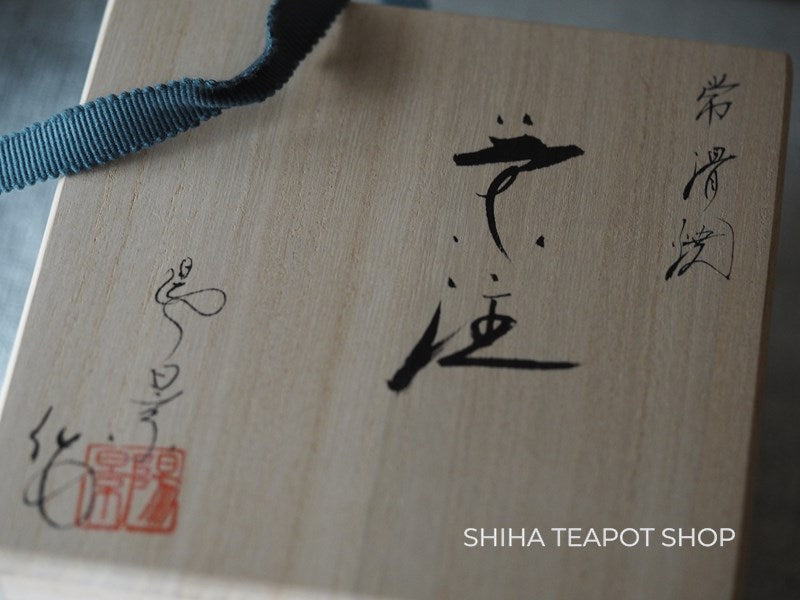 常滑焼
茶注
陽景作
陽景
SHIHA TEAPOT SHOP